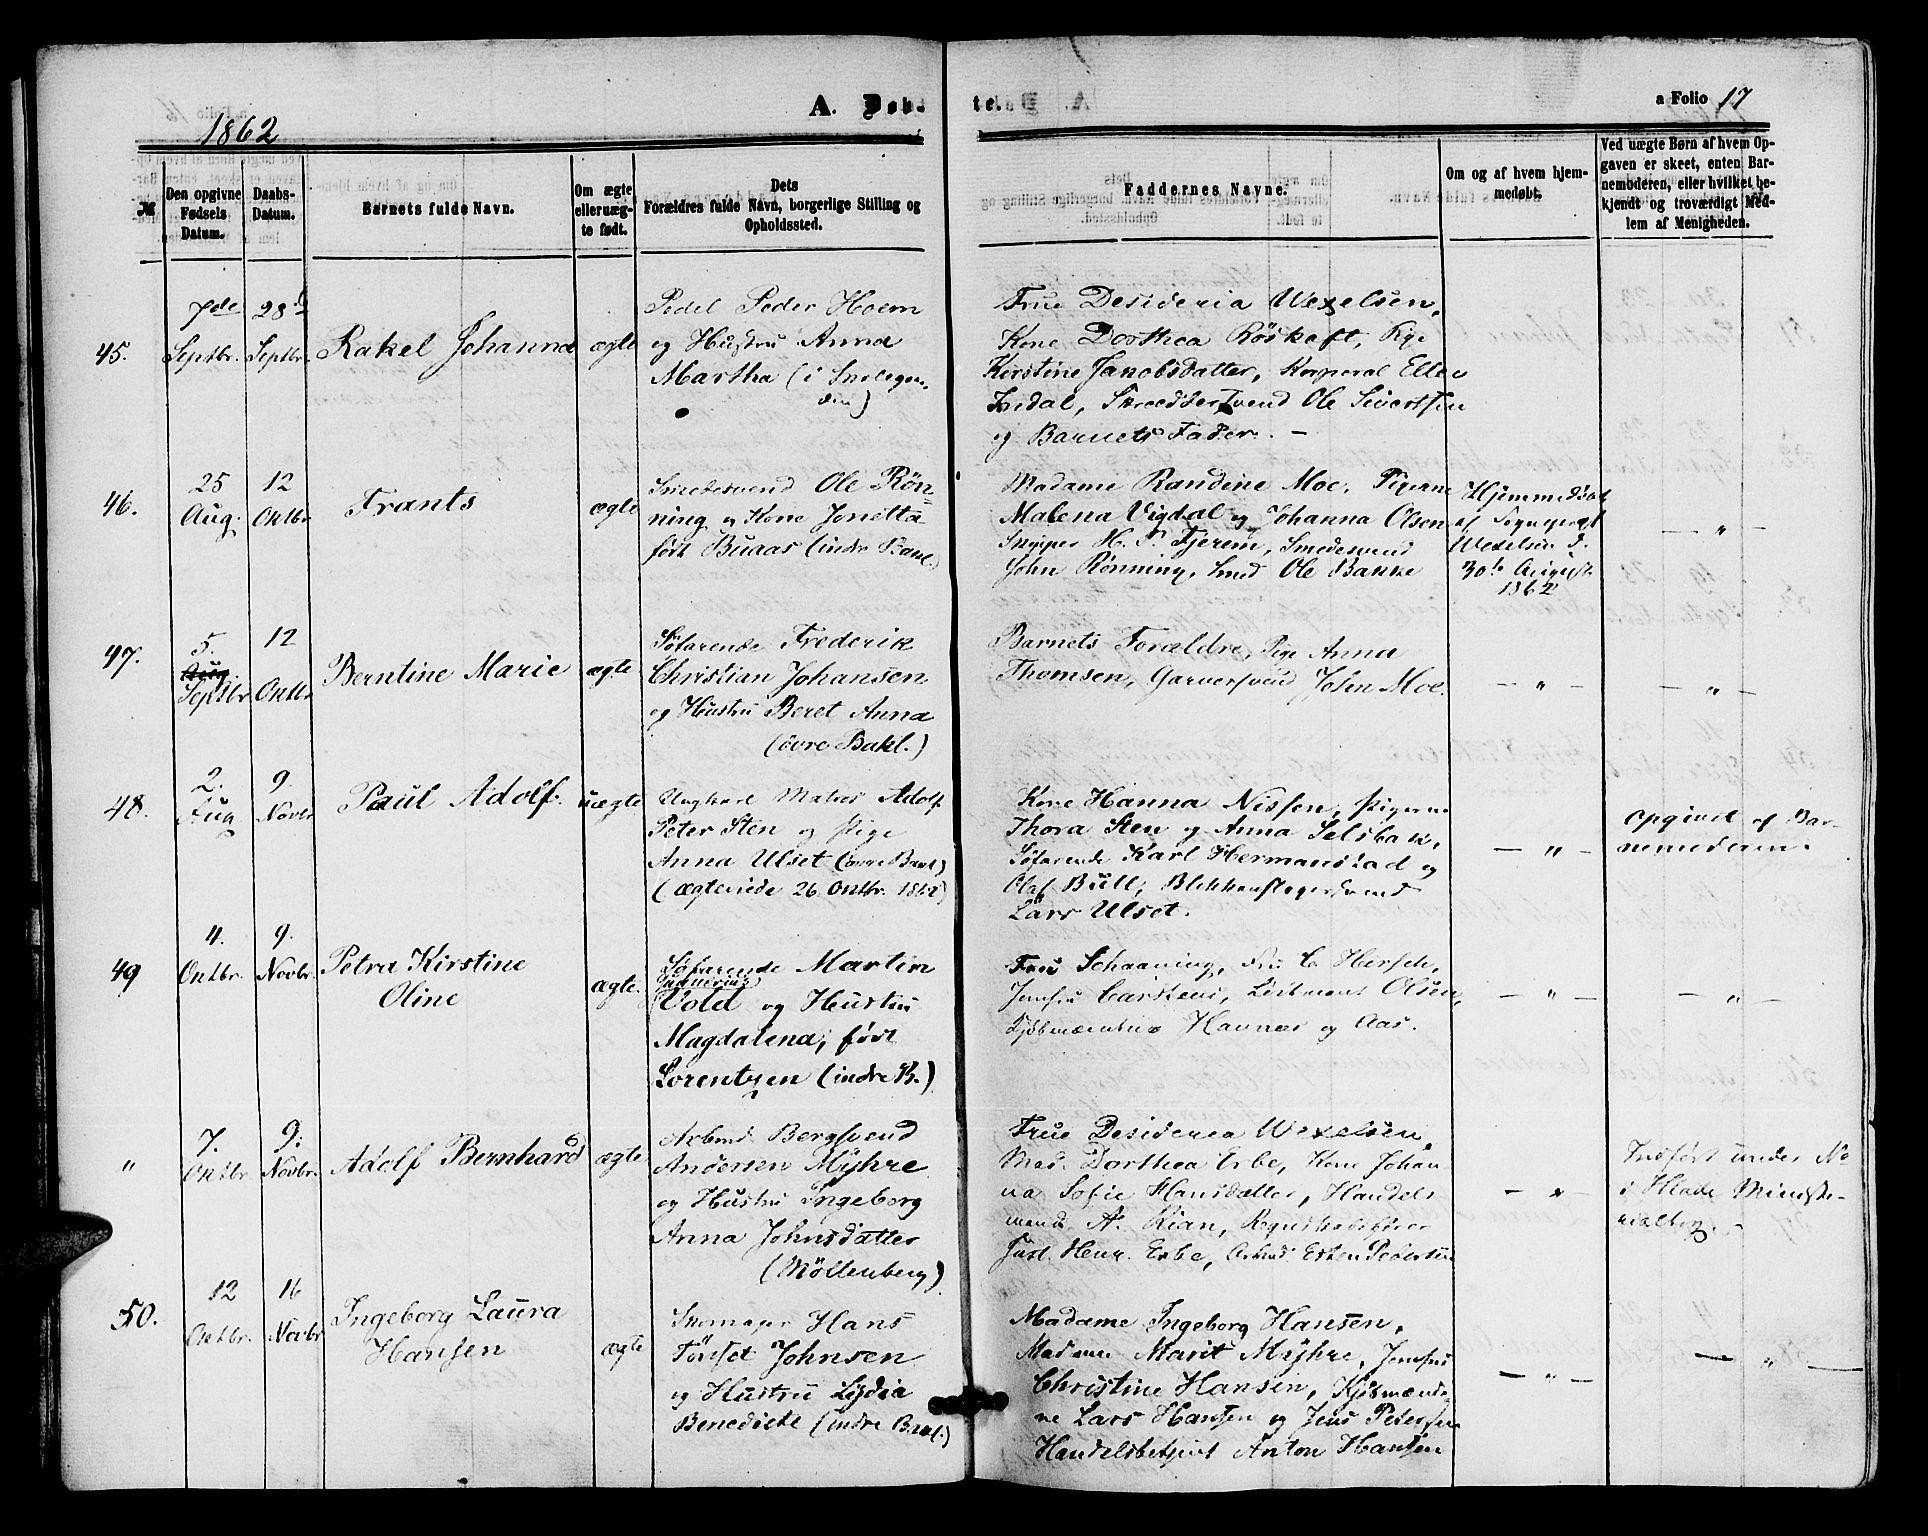 A. Døbte.
a Folio 17
1862
№
Den opgivne Fødsels Datum.
Daabs-Datum.
Barnets fulde Navn.
Om ægte eller uægte født.
Dets Forældres fulde Navn, borgerlige Stilling og Opholdssted.
Faddernes Navne.
Om og af hvem hjemmedøbt.
Ved uægte Børn af hvem Opgaven er skeet, enten Barnemoderen, eller hvilket bekjendt og troværdigt Medlem af Menigheden.
45.
7de Septbr.
28d Septbr.
Rakel Johanna
ægte
Pedel Peder Hoem
og Hustru Anna
Martha (i
Frue Desideria Wexelsen,
Kone Dorthea Röskaft, Pige
Kirstine Jakobsdatter, Korporal Ellev
Skræddersvend Ole Sivertsen
og Barnets Fader. –
46.
25 Aug.
12 Oktbr
Frants
ægte
Smedesvend Ole Rön=
ning og Kone Jonetta
født Buaas (indre Bakl.)
Madame Randine Moe, Pigerne
Malena Vigdal og Johanna Olsen
Skipper H. P. Fjerem, Smedesvend
John Rönning, Smed Ole Bakke
Hjemmedöbt
af Sogneprest
Wexelsen d.
30te August
1862
— " —
47.
5. Aug. Septbr
12 Oktbr
Berntine Marie
ægte
Söfarende Frederik
Christian Johansen
og Hustru Beret Anna
(övre Bakl.)
Barnets Forældre, Pige Anna
Thomsen, Garversvend John Moe.
— " —
— " —
48.
2. Aug
9. Novbr
Paul Adolf.
uægte
Ungkarl Matros Adolf
Peter Sten og Pige
Anna Ulset (övre Bakl)
(ægteviede 26 Oktbr. 1862)
Kone Hanna Nissen, Pigerne
Thora Sten og Anna Selsbak,
Söfarende Karl Hermanstad og
Olaf Bull, Blikkenslagersvend
Lars Ulset.
— " —
Opgivet af Bar-
nemoderen.
49
4. Oktbr.
9. Novbr.
Petra Kirstine
Oline
ægte.
Söfarende Martin
Vold og Hustru
Magdalena, født
Lorentzen (indre B.)
Fru Schaaning, Fru C Hersch,
Jomfru Carstens, Olsen,
Kjöbmændene Havnes og Aas.
— " —
— " —
"
7. Oktbr
9. Novbr.
Adolf Bernhard
ægte
Arbmd. Bergsvend
Andersen Myhre
og Hustru Ingeborg
Anna Johnsdatter
(Möllenberg)
Frue Desideria Wexelsen,
Mad. Dorthea Erbe, Kone Johan-
na Sofie Hansdatter, Handels-
mand A. Kian, Regnskabsförer
Just. Henr. Erbe, Arbmd. Esten Pedersen
— " —
Indfört under No
i Hlade Ministe-
rialbog. –
50.
12 Oktbr.
16 Novbr
Ingeborg Laura
Hansen
ægte
Skomager Hans
Tönset Johnsen
og Hustru Lydia
Benedicte (indre Bakl.)
Madame Ingeborg Hansen,
Madame Marit Myhre, Jomfru
Christine Hansen, Kjöbmænde-
ne Lars Hansen og Jens Petersen
Handelsbetjent Anton Hansen
— " —
— " —